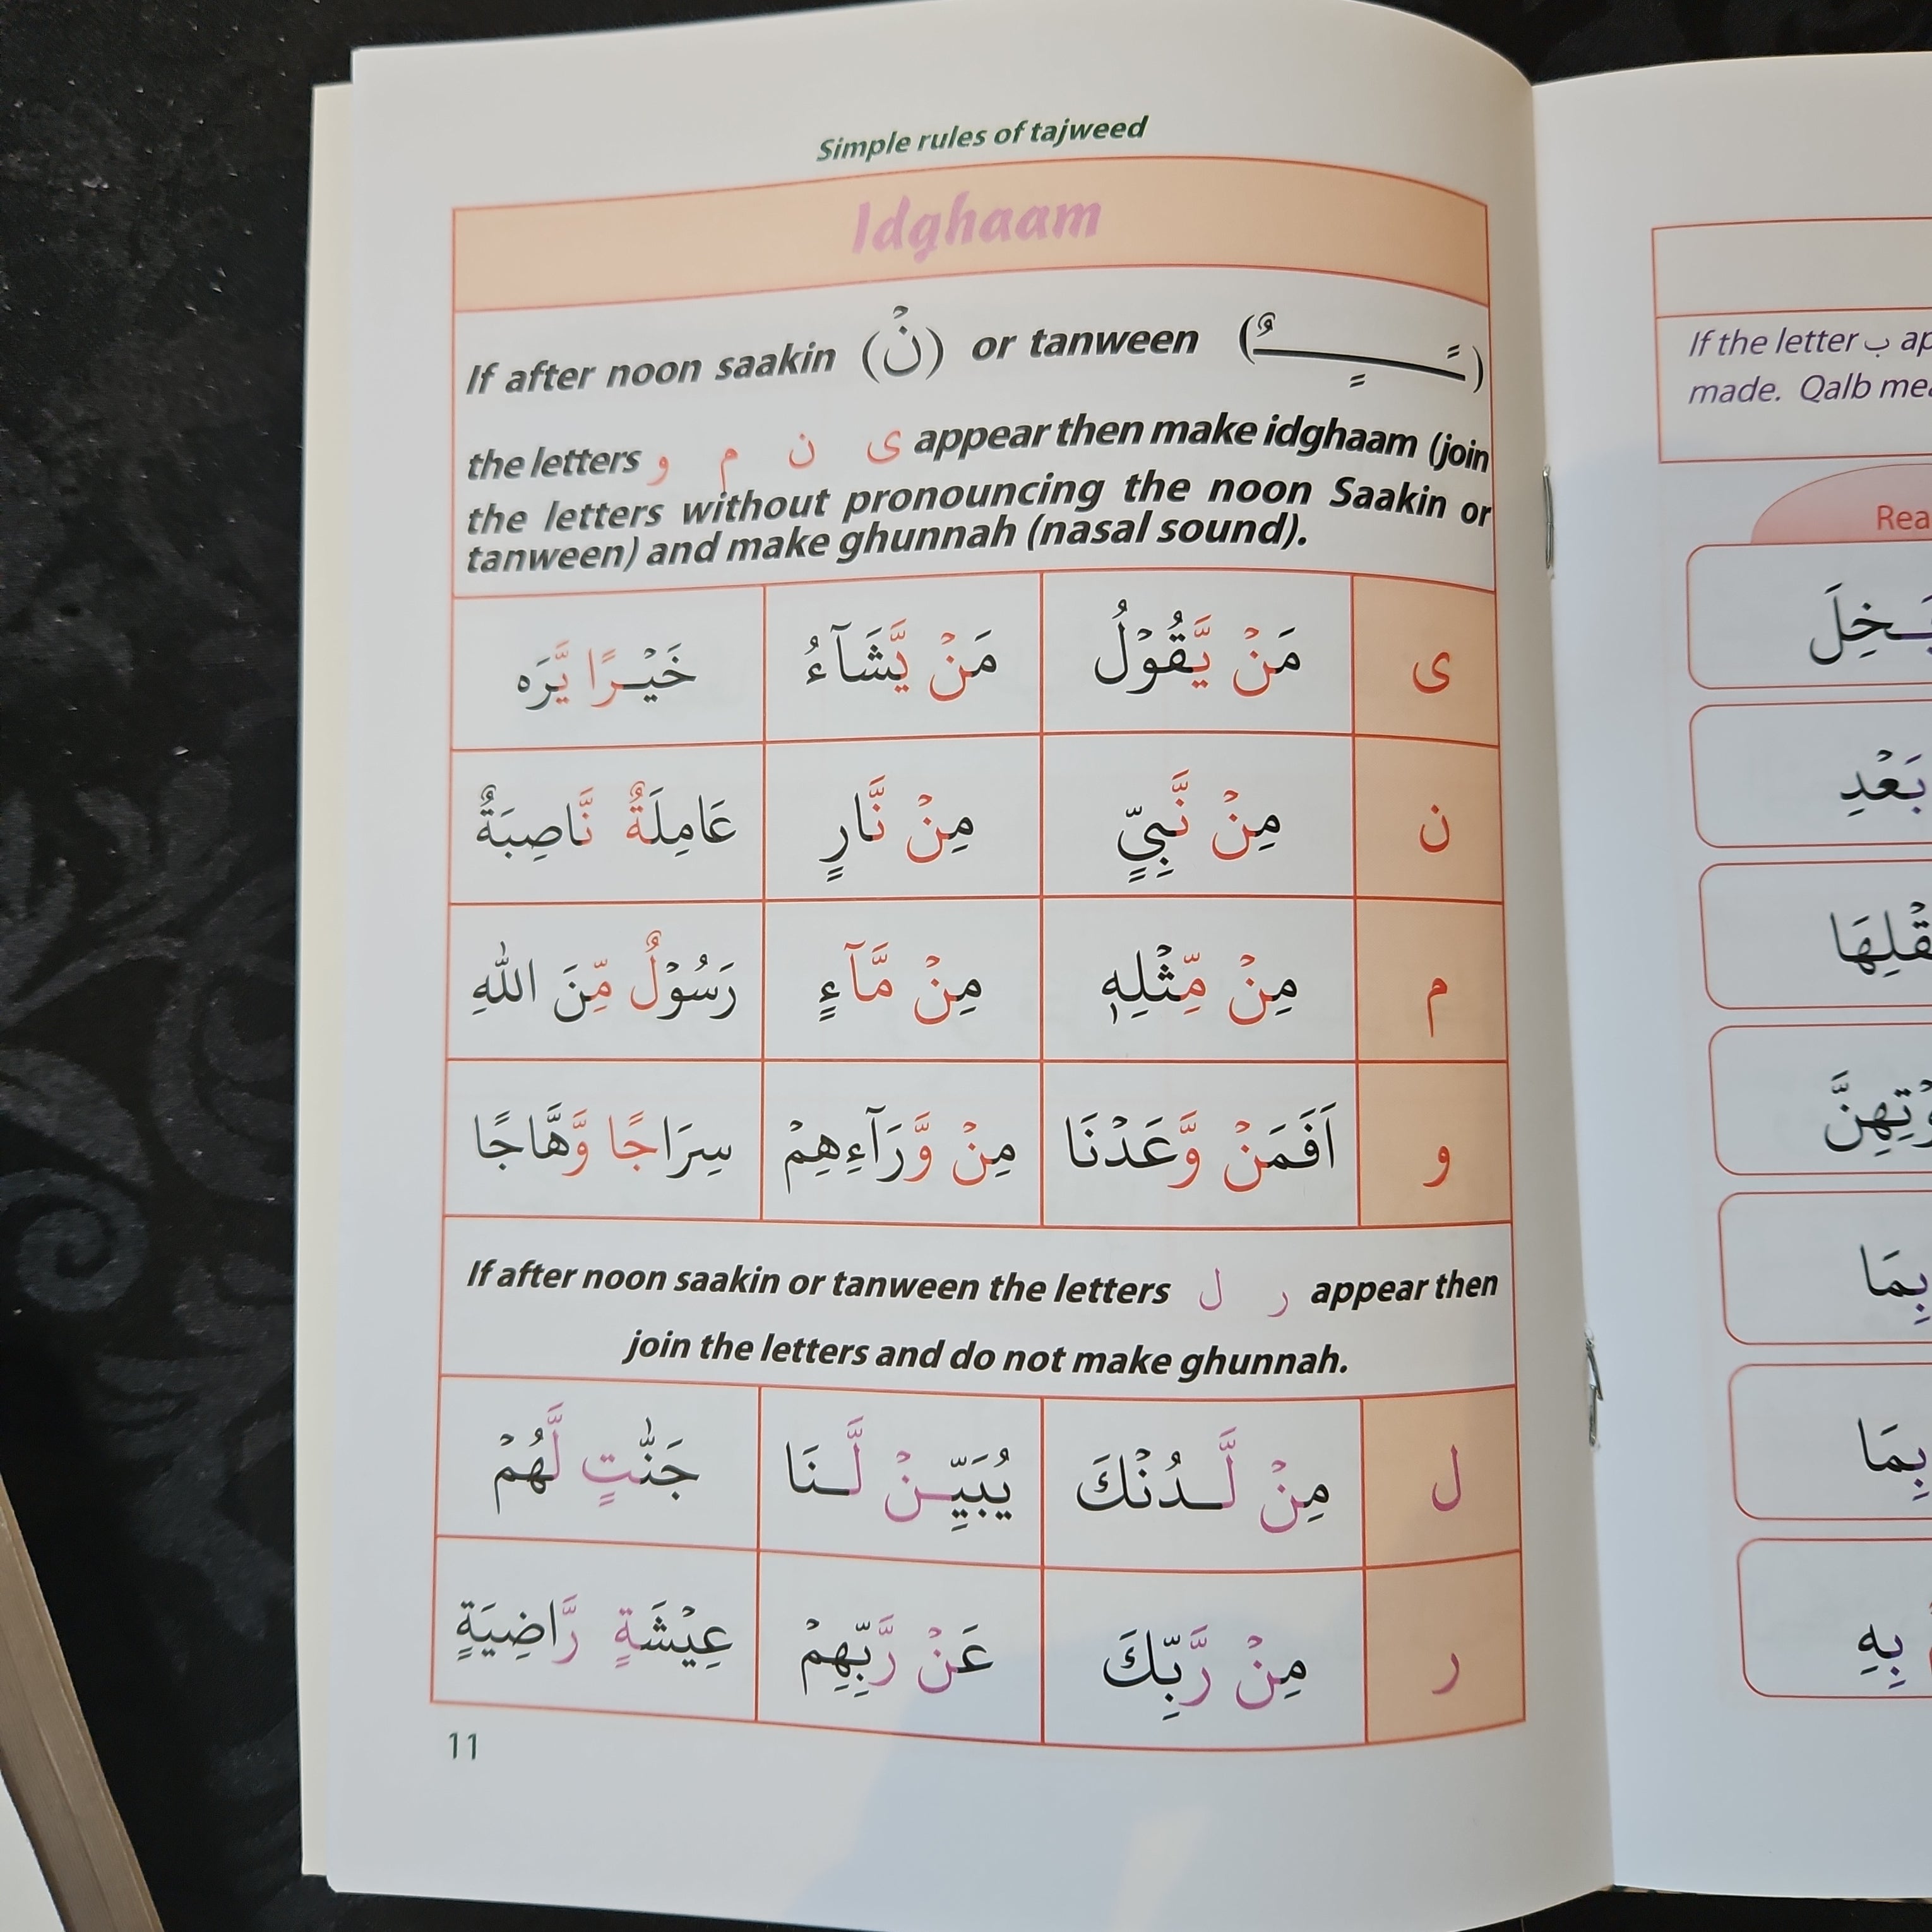 Simple rules of tajweed
Idghaam
If after noon saakin (نْ) or tanween (ــًــٍــٌ)
the letters و م ن ى appear then make idghaam (join
the letters without pronouncing the noon Saakin or
tanween) and make ghunnah (nasal sound).
ى مَنْ يَّقُوْلُ مَنْ يَّشَآءُ خَيْرًا يَّرَه
ن مِنْ نَّبِيٍّ مِنْ نَّارٍ عَامِلَةٌ نَّاصِبَةٌ
م مِنْ مِّثْلِهٖ مِنْ مَّآءٍ رَسُوْلٌ مِّنَ اللّٰهِ
و اَفَمَنْ وَّعَدْنَا مِنْ وَّرَآءِهِمْ سِرَاجًا وَّهَّاجًا
If after noon saakin or tanween the letters ل ر appear then
join the letters and do not make ghunnah.
ل مِنْ لَّدُنْكَ يُبَيِّنْ لَّنَا جَنّٰتٍ لَّهُمْ
ر مِنْ رَّبِّكَ عَنْ رَّبِّهِمْ عِيْشَةٍ رَّاضِيَةٍ
11
If the letter ب
made. Qalb
بَعْدِ
بِمَا
بِمَا
بِهِ